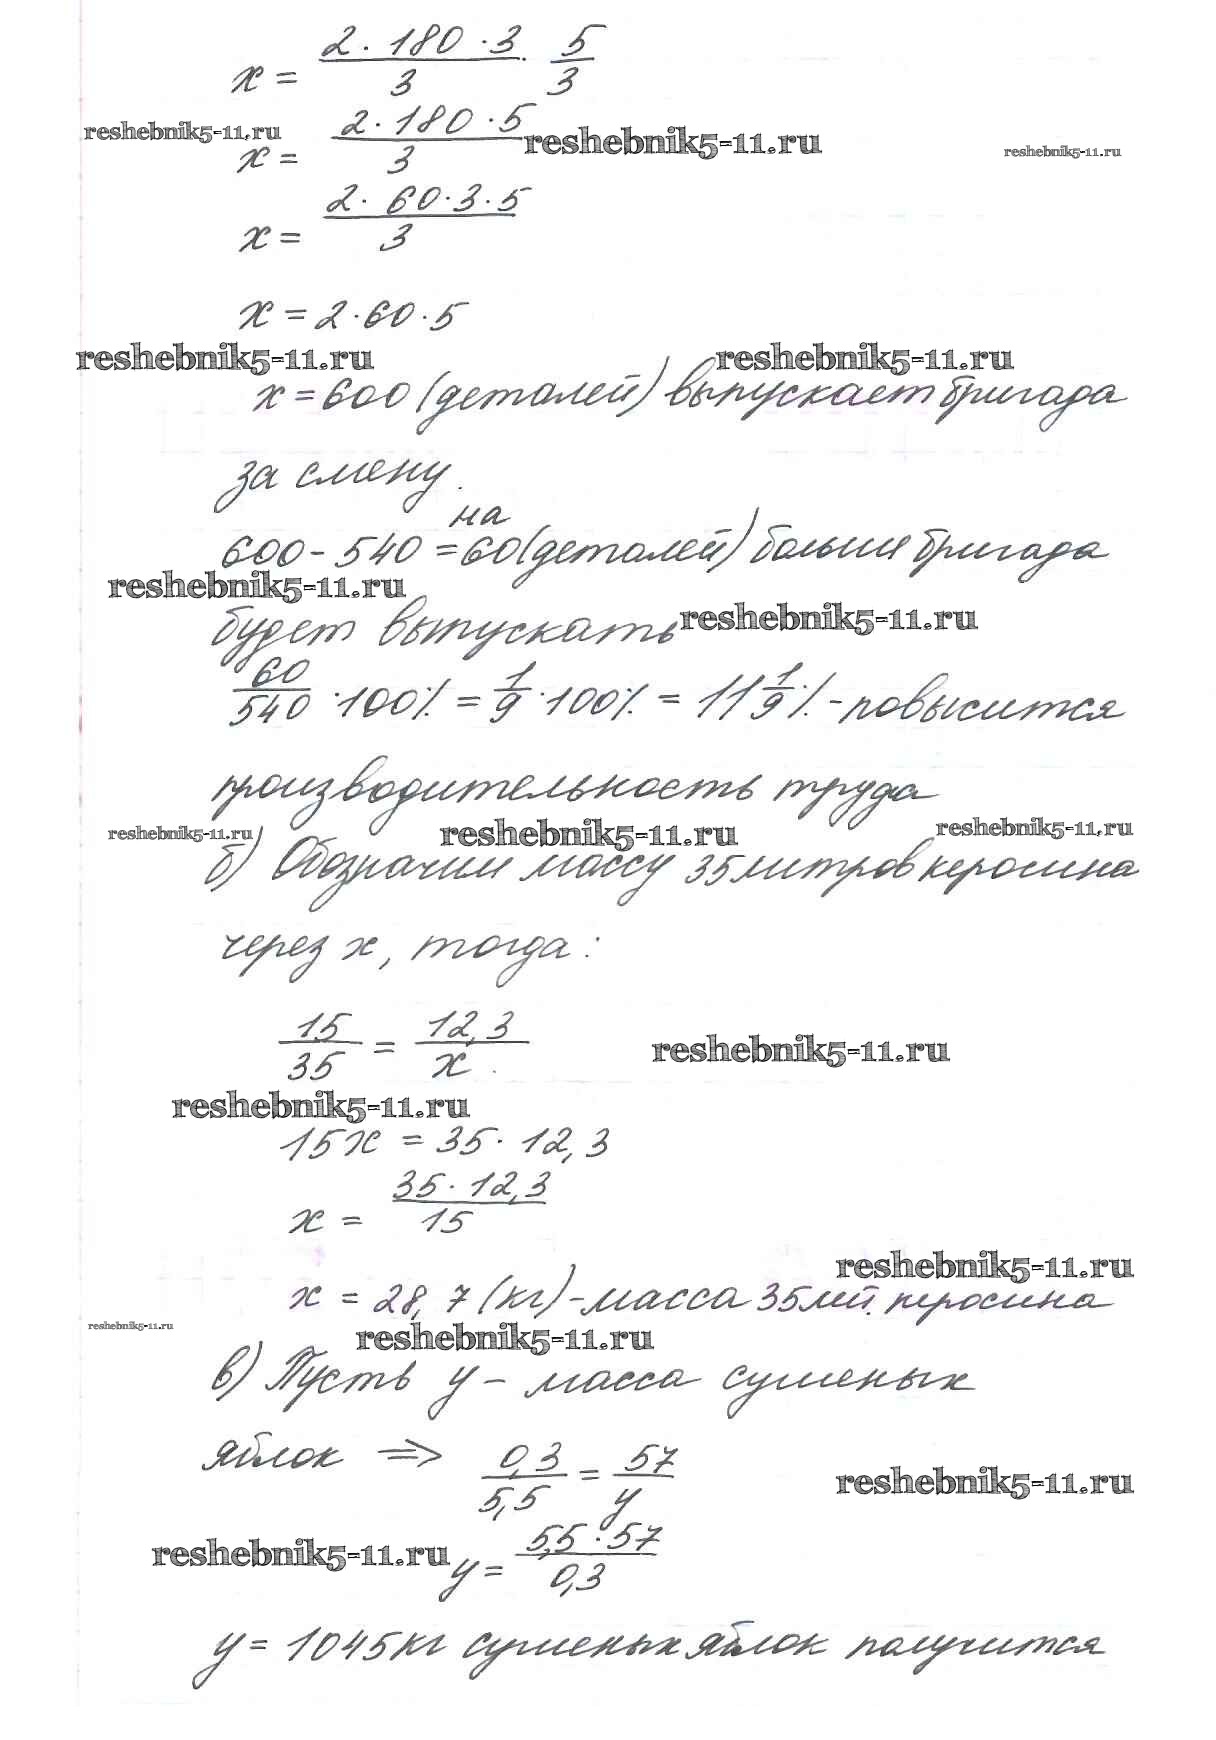 x = 2 · 180 · 3 / 3 · 5/3
reshebnik5-11.ru
x = 2 · 180 · 5 / 3
reshebnik5-11.ru
reshebnik5-11.ru
x = 2 · 60 · 3 · 5 / 3
x = 2 · 60 · 5
reshebnik5-11.ru reshebnik5-11.ru
x = 600 (деталей) выпускает бригада
за смену.
на
600 - 540 = 60 (деталей) больше бригада
reshebnik5-11.ru
будет выпускать reshebnik5-11.ru
60/540 · 100% = 1/9 · 100% = 11 1/9 % - повысится
производительность труда
reshebnik5-11.ru reshebnik5-11.ru reshebnik5-11.ru
б) Обозначим массу 35 литров керосина
через x, тогда:
15/35 = 12,3/x.
reshebnik5-11.ru
reshebnik5-11.ru
15x = 35 · 12,3
x = 35 · 12,3 / 15
reshebnik5-11.ru
x = 28,7 (кг) - масса 35 керосина
reshebnik5-11.ru
reshebnik5-11.ru
в) Пусть y - масса сушеных
яблок => 0,3/5,5 = 57/y
reshebnik5-11.ru
reshebnik5-11.ru
y = 5,5 · 57 / 0,3
y = 1045 кг сушеных яблок получится